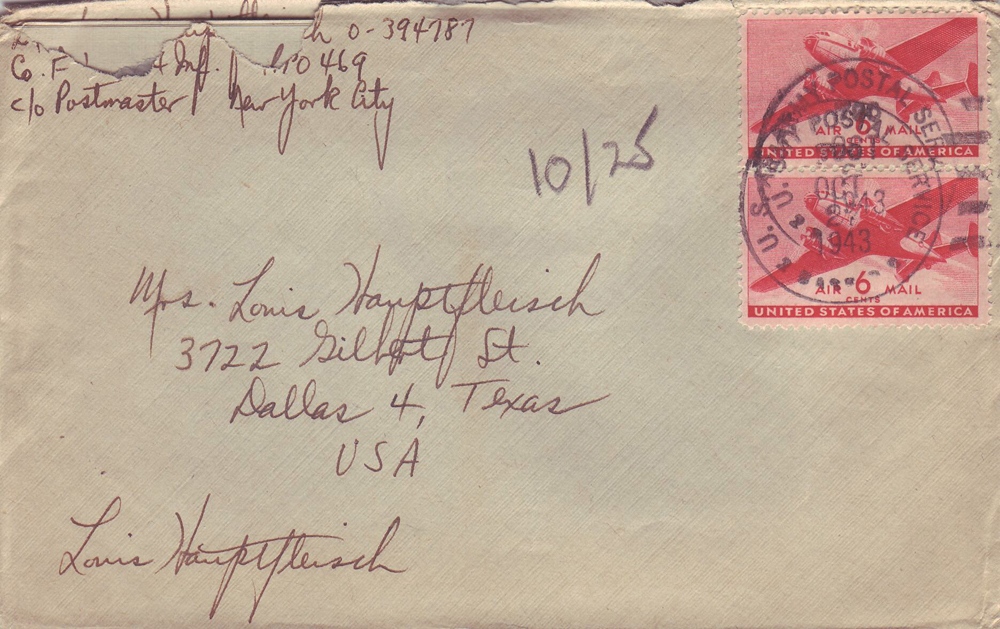 0-394787
Co. F Inf. APO 469
c/o Postmaster New York City
10/25
AIR 6 MAIL
UNITED STATES OF AMERICA
AIR 6 MAIL
CENTS
UNITED STATES OF AMERICA
U.S. ARMY POSTAL SERVICE
OCT
1943
U.S. ARMY POSTAL SERVICE
OCT
1943
Mrs. Louis Hauptfleisch
3722 Gilbert St.
Dallas 4, Texas
USA
Louis Hauptfleisch